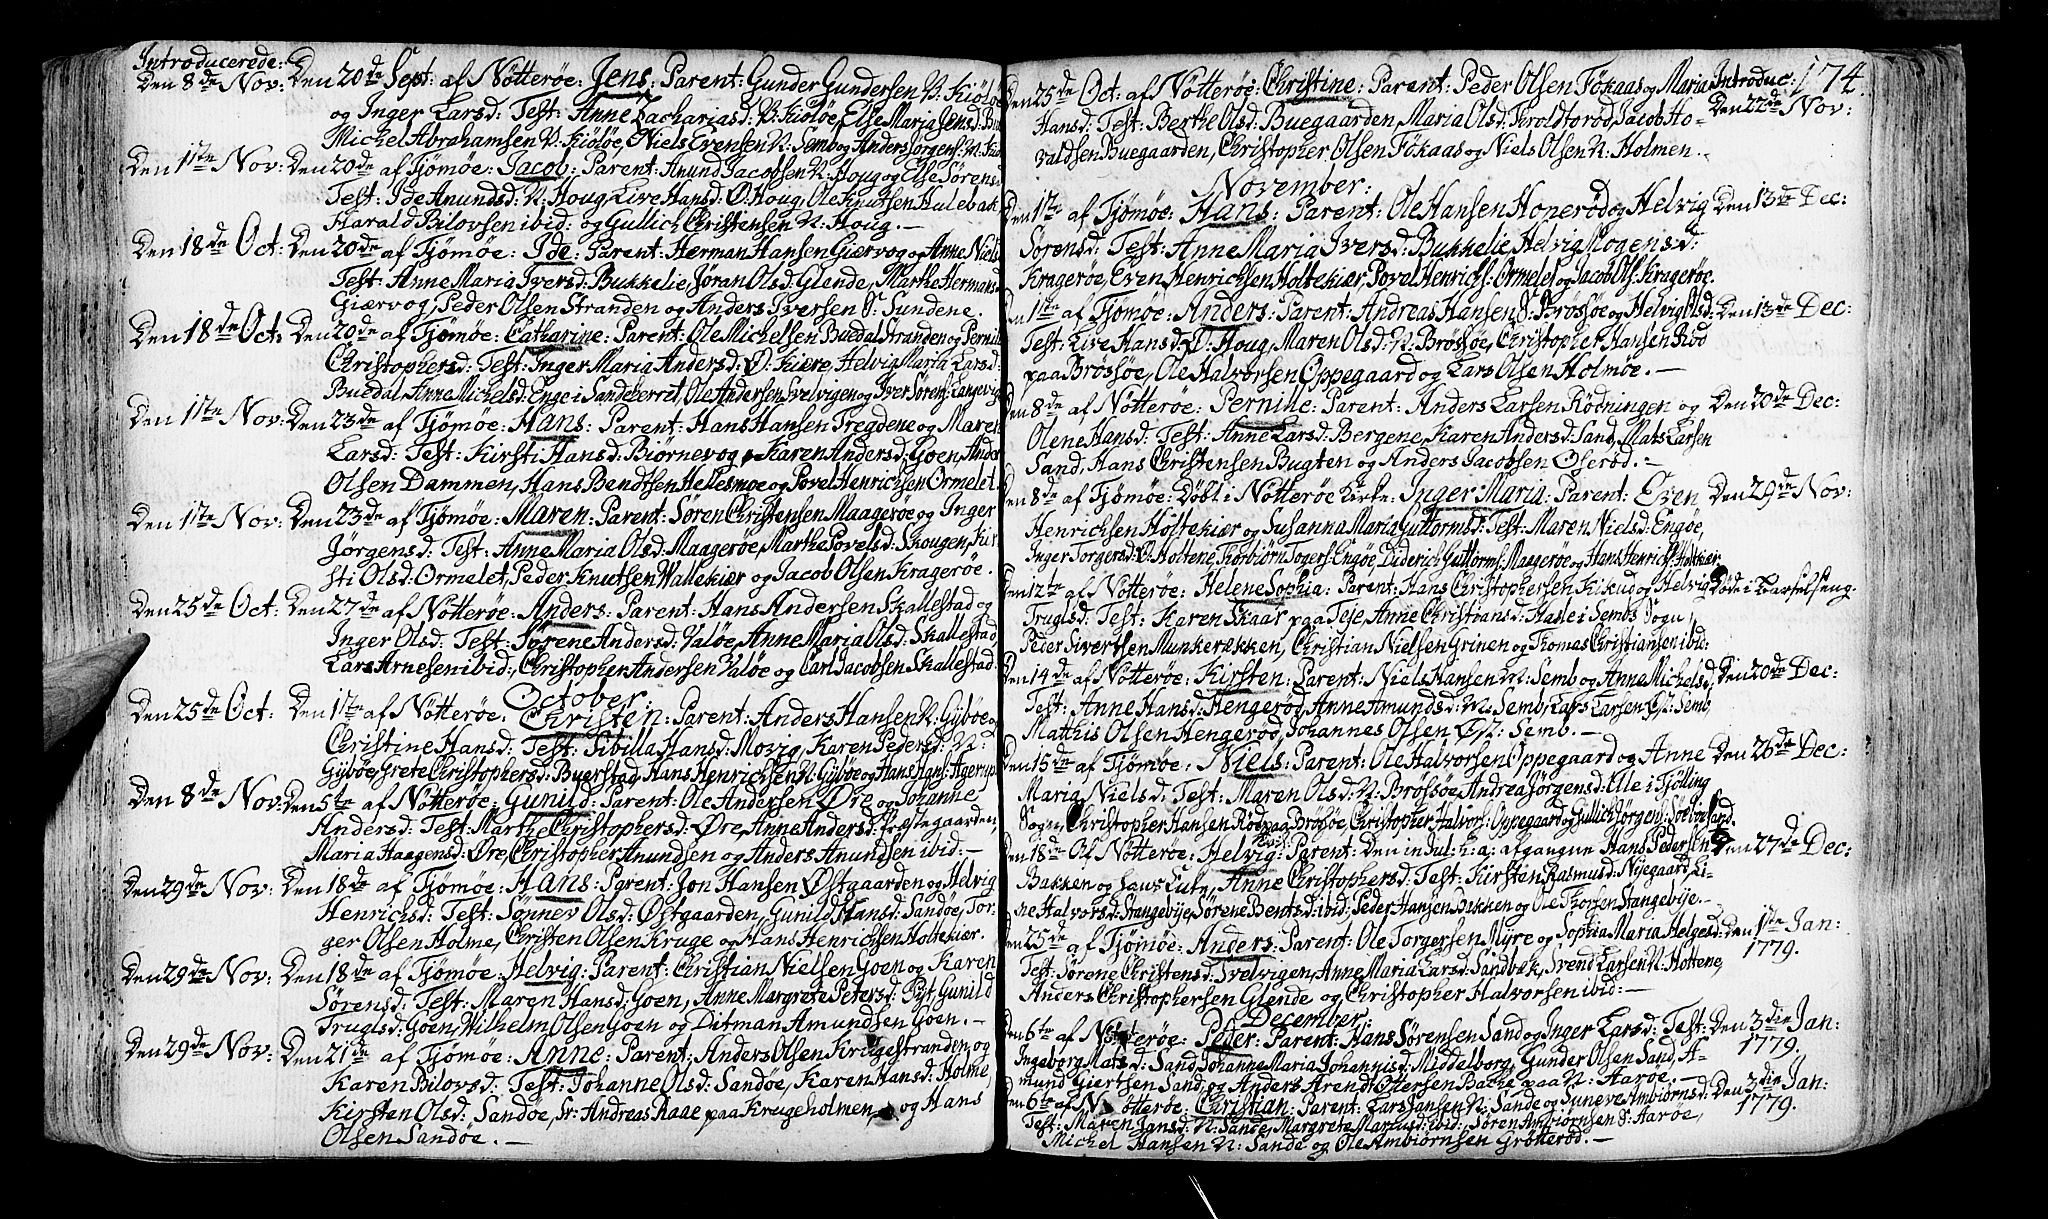 Introducerede:
Den 8de Nov: Den 20de Sept: af Nøtterøe: Jens: Parent: Gunder Gundersen N: Kiøløe
og Inger Larsd: Test: Anne Zachariasd: N: Kiøløe, Else Maria Jensd:
Michel Abrahamsen N: Kiøløe, Niels Evensen N: Semb og Anders Jørgens: N:
Den 1ste Nov: Den 20de af Tjømøe: Jacob: Parent: Anund Jacobsen N: Houg og Else Sørens:
Test: Ide Anundsd: N: Houg, Live Hansd: Ø: Houg, Ole Knutsen Hulebak
Harald Bilovsen ibid: og Gullich Christensen N: Houg. —
Den 18de Oct: Den 20de af Tjømøe: Ide: Parent: Herman Hansen Giervog og Anne Niels
Test: Anne Maria Iversd: Bukkelie, Jøran Olsd: Glende, Marthe Hermans
Giærvog, Peder Olsen Stranden og Anders Iversen S: Sundene.
Den 18de Oct: Den 20de af Tjømøe: Catharine: Parent: Ole Michelsen Buedal Stranden og Pernill
Christophersd: Test: Inger Maria Andersd: Ø: Kiere, Helvig Marta Larsd:
Buedal, Anna Michelsd: Enge i Sandeherret, Ole Andersen Svelvigen og Iver Sørens: Langevig
Den 1ste Nov: Den 23de af Tjømøe: Hans: Parent: Hans Hansen Fregdene og Maren
Larsd: Test: Kirsti Hansd: Biørnevog, Karen Andersd: Goen, Ander
Olsen Dammen, Hans Bendtsen Hellesmoe og Povel Henrichsen Ormelet.
Den 1ste Nov: Den 23de af Tjømøe: Maren: Parent: Søren Christensen Maagerøe og Inger
Jørgensd: Test: Anne Maria Olsd: Maagerøe, Marthe Povelsd: Skougen, Kir
sti Olsd: Ormelet, Peder Knutsen Wallekiær og Jacob Olsen Kragerøe.
Den 25de Oct: Den 27de af Nøtterøe: Anders: Parent: Hans Andersen Skallestad og
Inger Olsd: Test: Sørene Andersd: Valøe, Anne Maria Olsd: Skallestad
Lars Arnesen ibid:, Christopher Andersen Valøe og Carl Jacobsen Skallestad.
October.
Den 25de Oct: Den 1ste af Nøtterøe: Christen: Parent: Anders Hansen N: Gÿbøe og
Christine Hansd: Test: Sibilla Hansd: Movig, Karen Pedersd: N:
Gÿbøe, Grete Christophersd: Buerstad, Hans Henrichsen N: Gÿbøe og Hans Hans: Agerup
Den 8de Nov: Den 5te af Nøtterøe: Gunild: Parent: Ole Andersen Øre og Johanne
Andersd: Test: Marthe Christophersd: Øre, Anne Andersd: Præstegaarden,
Maria Haagensd: Øre, Christopher Anundsen og Anders Anundsen ibid: —
Den 29de Nov: Den 18de af Tjømøe: Hans: Parent: Jon Hansen Østgaarden og Helvig
Henrichsd: Test: Sønnev Olsd: Østgaarden, Gunild Hansd: Sandøe, Tor-
ger Olsen Holme, Christen Olsen Kruge og Hans Henrichsen Holtekiær.
Den 29de Nov: Den 18de af Tjømøe: Helvig: Parent: Christian Nielsen Goen og Karen
Sørensd: Test: Maren Hansd: Goen, Anne Margrete Petersd: Pÿt, Gunild
Truglsd: Goen, Wilhelm Olsen Goen og Ditman Amundsen Goen. —
Den 29de Nov: Den 21de af Tjømøe: Anne: Parent: Anders Olsen Krugestranden og
Karen Bilovsd: Test: Johanne Olsd: Sandøe, Karen Hansd: Holme,
Kirsten Olsd: Sandøe, Sr: Andreas Raae paa Krugeholmen, og Hans
Olsen Sandøe. —
Introduc: 174.
Den 25de Oct: af Nøtterøe: Christine: Parent: Peder Olsen Føkaas og Maria Den 22de Nov:
Hansd: Test: Berthe Olsd: Buegaarden, Maria Olsd: Froldtorød, Jacob Ho-
valdsen Buegaarden, Christopher Olsen Føkaas og Niels Olsen N: Holmen. —
November:
Den 1ste af Tjømøe: Hans: Parent: Ole Hansen Honerød og Helvig Den 13de Dec:
Sørensd: Test: Anne Maria Iversd: Bukkelie, Helvig Mogensd:
Kragerøe, Even Henrichsen Holtekiær, Povel Henrichs: Ormelet og Jacob Ols: Kragerøe.
Den 1ste af Tjømøe: Anders: Parent: Andreas Hansen S: Brøsøe og Helvig Olsd: Den 13de Dec:
Test: Live Hansd: Ø: Houg, Maren Olsd: N: Brøsøe, Christopher Hansen Rød
paa Brøsøe, Ole Halvorsen Oppegaard og Lars Olsen Holmøe. —
Den 8de af Nøtterøe: Pernille: Parent: Anders Larsen Rødningen og Den 20de Dec:
Olene Hansd: Test: Anne Larsd: Bergene, Karen Andersd: Sand, Mats Larsen
Sand, Hans Christensen Bugten og Anders Jacobsen Oserød. —
Den 8de af Tjømøe: Døbt i Nøtterøe Kirke: Inger Maria: Parent: Even Den 29de Nov:
Henrichsen Holtekiær og Susanna Maria Guttormsd: Test: Maren Nielsd: Engøe,
Inger Torgersd: Ø: Holtene, Torbiørn Togers: Engøe, Diderich Guttorms: Maagerøe og Hans Henrichs: Holtekiær
Den 12te af Nøtterøe: Helene Sophia: Parent: Hans Christophersen Kikud og Helvig Døde i Barselseng.
Truglsd: Test: Karen Skaar paa Teje, Anne Christiansd: Hasle i Sembs Sogn,
Peder Sivertsen Munkerækken, Christian Nielsen Grinen og Thomas Christiansen ibid:
Den 14de af Nøtterøe: Kirsten: Parent: Niels Hansen N: Semb og Anne Michelsd: Den 20de Dec:
Test: Anne Hansd: Hengerød, Anne Amundsd: N: Semb, Lars Larsen Ø: Semb,
Matthis Olsen Hengerød, Johannes Olsen Semb. —
Den 15de af Tjømøe: Niels: Parent: Ole Halvorsen Oppegaard og Anne Den 26de Dec:
Maria Nielsd: Test: Maren Olsd: N: Brøsøe, Andrea Jørgensd: Ule i Tjølling
Sogn, Christopher Hansen Rød paa Brøsøe, Christopher Halvors: Oppegaard og Gullich Jørgens:
Den 18de Af Nøtterøe: Helvig: Parent: Den i Jul: afgangne Hans Pedersen Den 27de Dec:
Bakken og hans Anne Christophersd: Test: Kirsten Rasmusd: Nÿegaard, Li-
ne Halvorsd: Stangebÿe, Sørene Bentsd: ibid: Peder Hansen Bakken og Ole Thorsen Stangebÿe. —
Den 25de af Tjømøe: Anders: Parent: Ole Torgersen Mÿre og Sophia Maria Helgesd: Den 1ste Jan:
1779.
Test: Sørene Christensd: Svelvigen, Anne Maria Larsd: Sandbæk, Svend Larsen N: Hottene,
Anders Christophersen Glende og Christopher Halvorsen ibid: —
December.
Den 6te af Nøtterøe: Peder: Parent: Hans Sørensen Sand og Inger Larsd: Test: Den 3die Jan:
1779.
Ingeborg Matsd: Sand, Johanne Maria Johannisd: Middelborg, Gunder Olsen Sand, A-
mund Giertsen Sand, og Anders Arendt Ottersen Bakke paa N: Aarøe. —
Den 6te af Nøtterøe: Christian: Parent: Lars Jansen N: Sande og Suneve Ambiørnsd: Den 3die Jan:
1779.
Test: Maren Jansd: N: Sande, Margrete Mariusd: ibid: Søren Ambiørnsen S: Aarøe,
Michel Hansen N: Sande og Ole Ambiørnsen Grøtterød. —